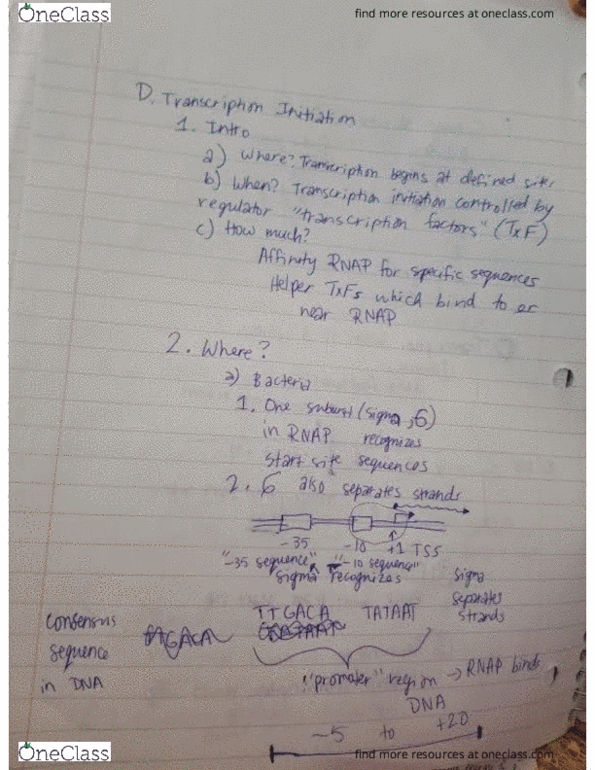 OneClass
find more resources at oneclass.com
D. Transcription Initiation
1. Intro
a) Where? Transcription begins at defined sites
b) When? Transcription initiation controlled by
regulator "transcription factors" (TxF)
c) How much?
Affinity RNAP for specific sequences
Helper TxFs which bind to or
near RNAP
2. Where?
a) Bacteria
1. One subunit (sigma, 6)
in RNAP recognizes
start site sequences
2. 6 also separates strands
-35 -10 +1 TSS
"-35 sequence" "-10 sequence"
sigma recognizes
sigma
separates
strands
TTGACA TATAAT
consensus
sequence
in DNA
"promoter" region → RNAP binds
DNA
~5 to +20
OneClass
find more resources at oneclass.com